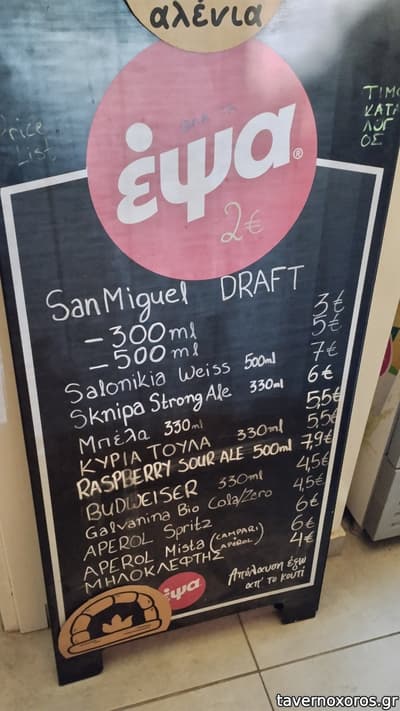 αλένια
Price
List
ΤΙΜΟ
ΚΑΤΑ
ΛΟΓ
ΟΣ
έψα®
2€
San Miguel DRAFT
– 300ml 3€
– 500ml 5€
Salonikia Weiss 500ml 7€
Sknipa Strong Ale 330ml 6€
Μπέλα 330ml 5,5€
ΚΥΡΙΑ ΤΟΥΛΑ 330ml 5,5€
RASPBERRY SOUR ALE 500ml 7,9€
BUDWEISER 330ml 4,5€
Galvanina Bio Cola/Zero 4,5€
APEROL Spritz 6€
APEROL Mista (CAMPARI APEROL) 6€
ΜΗΛΟΚΛΕΦΤΗΣ 4€
έψα
Απόλαυση έξω
απ' το κουτί
tavernoxoros.gr